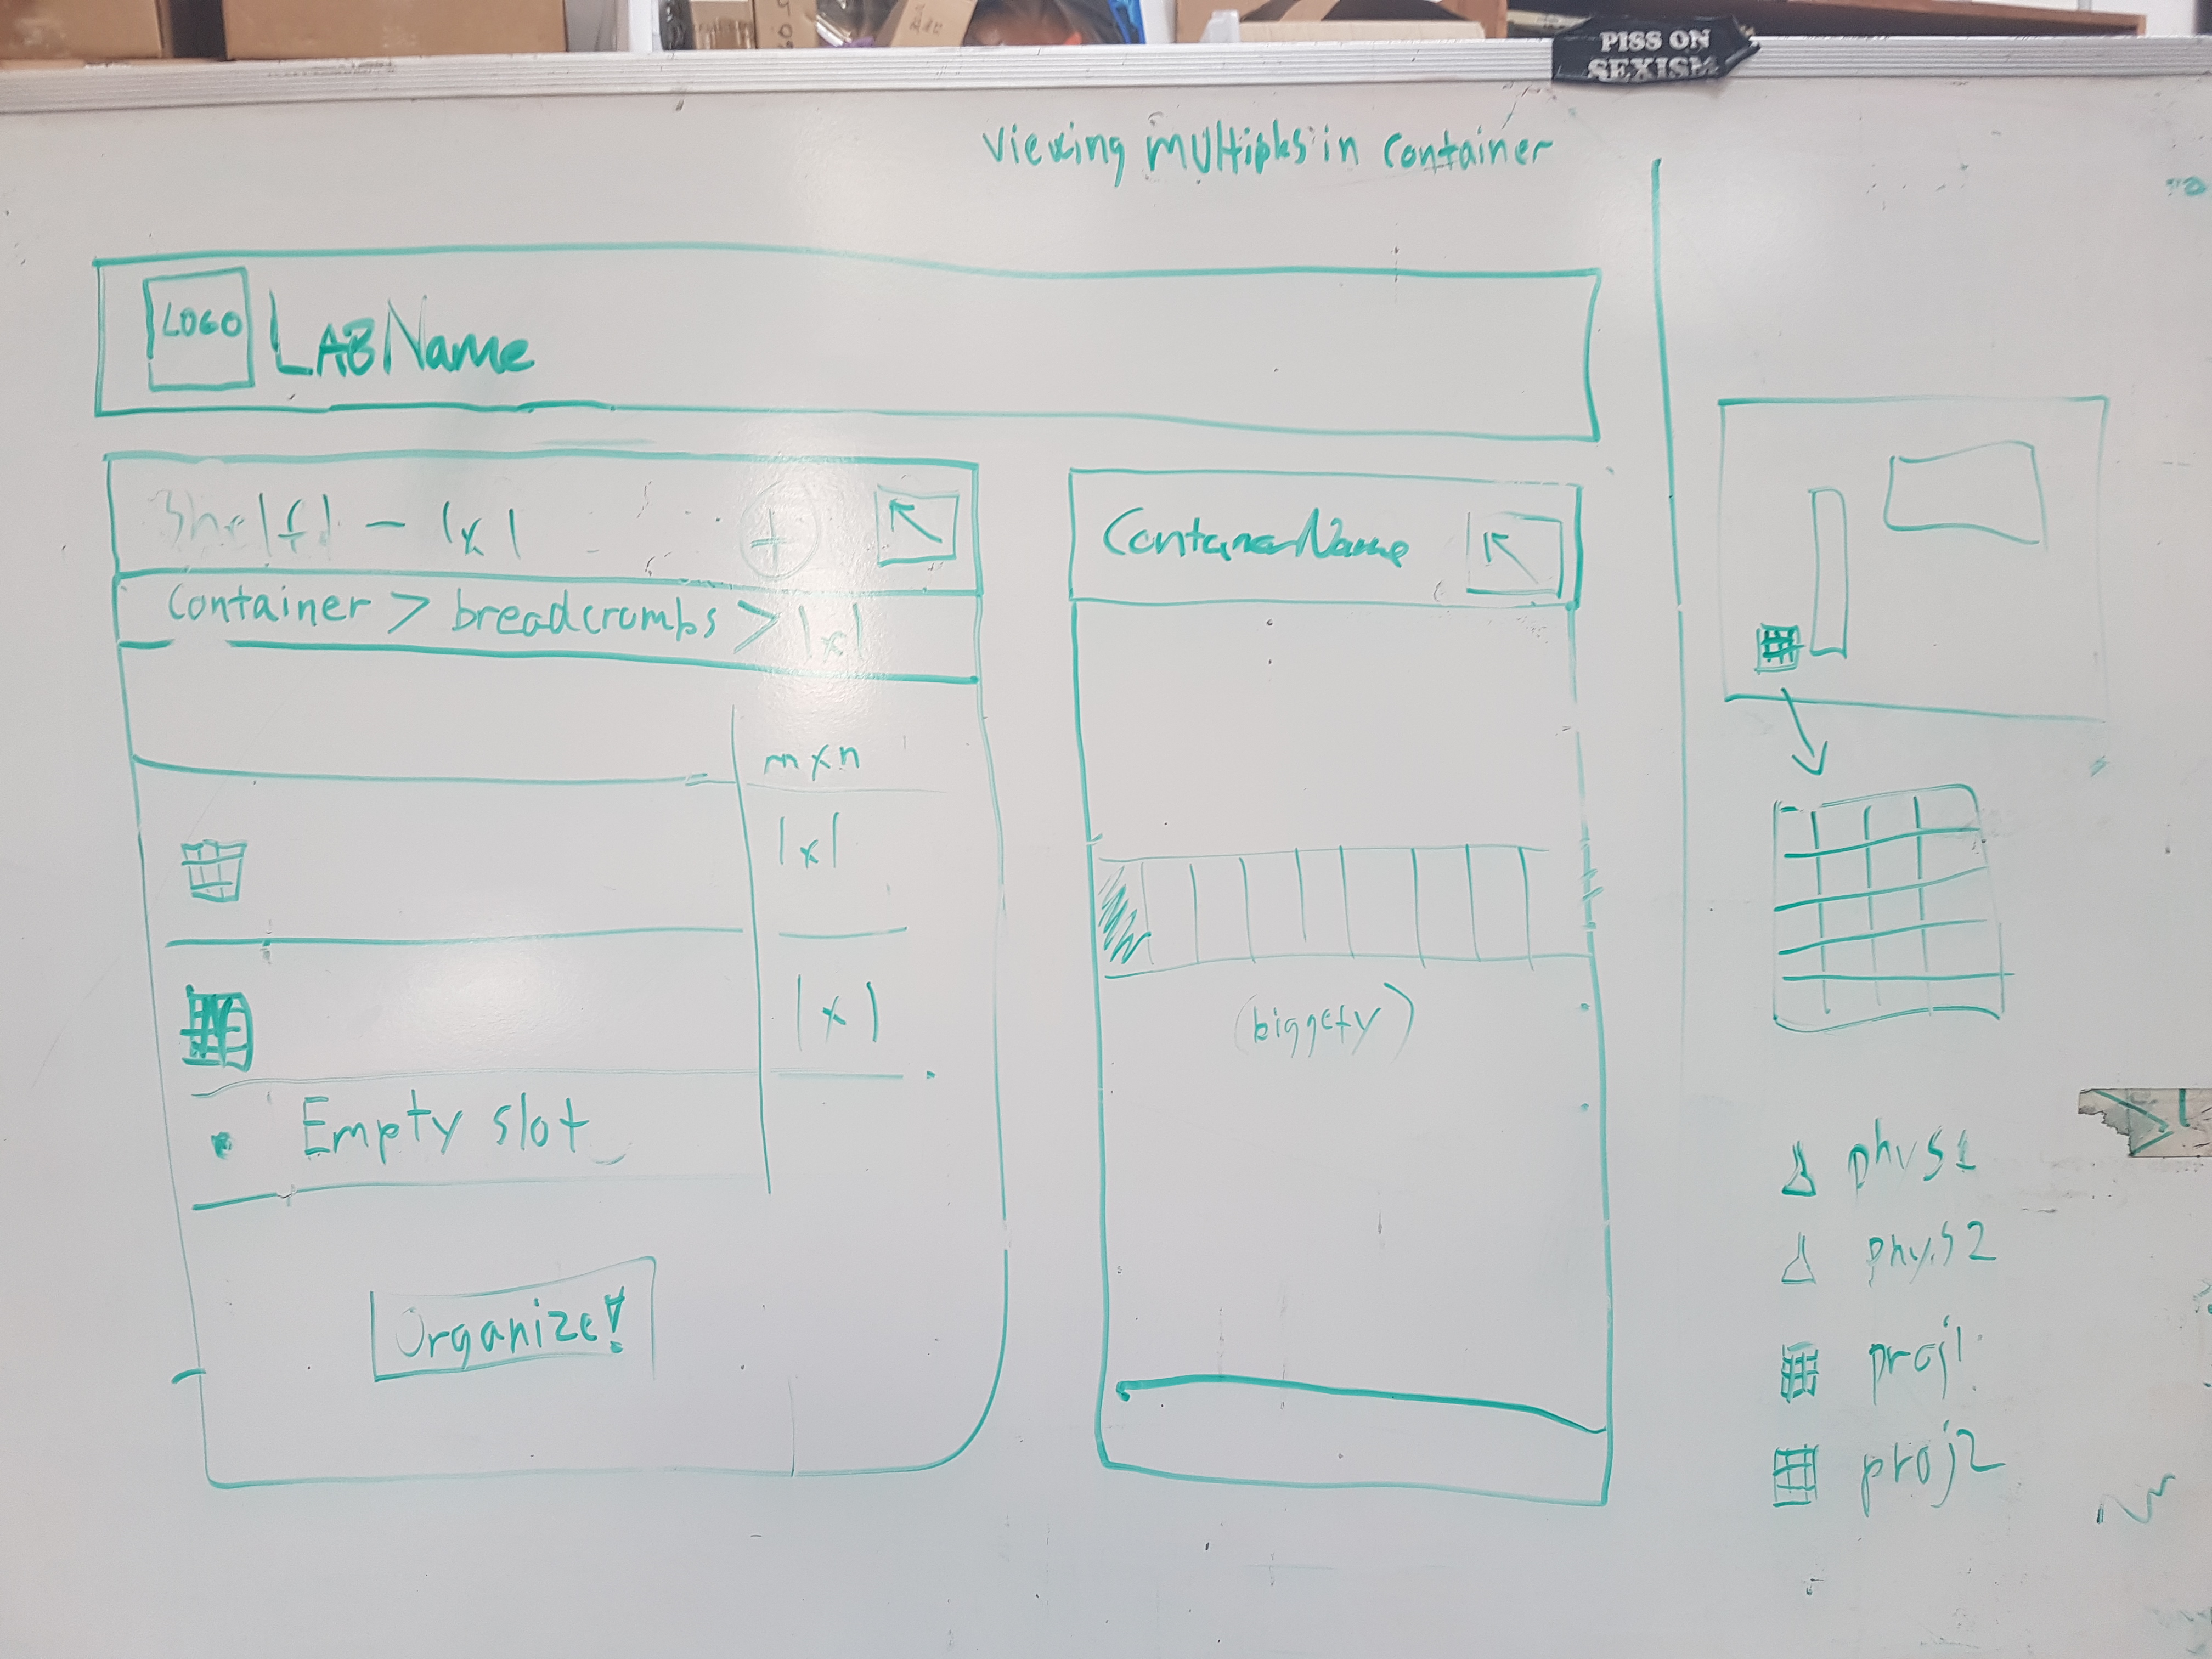 PISS ON
SEXISM
Viewing multiples in container
LOGO
LAB Name
Shelf1 - 1x1
+
Container > breadcrumbs > 1x1
mxn
1x1
1x1
Empty slot
Organize!
ContainerName
(biggety)
phys1
phys2
proj1
proj2